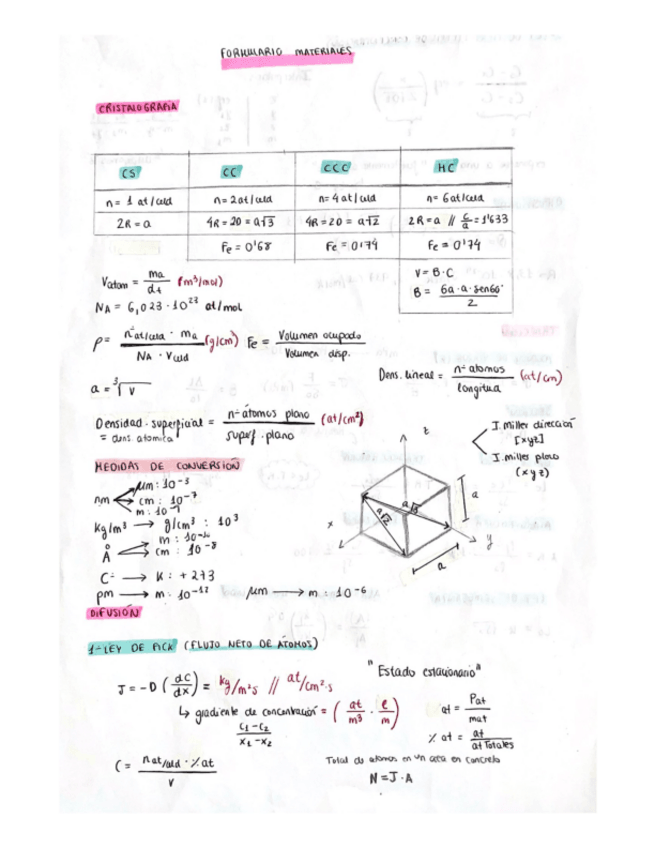 FORMULARIO MATERIALES
CRISTALOGRAFIA
CS CC CCC HC
n= 1 at/celd n= 2at/celd n= 4 at/celd n= 6at/celda
2R = a 4R = 2D = a√3 4R = 2D = a√2 2R = a // c/a = 1'633
Fe = 0'68 Fe = 0'74 Fe = 0'74
V = B·C
B = 6a·a·sen60°/2
Vatom = ma/dt (m³/mol)
NA = 6,023·10²³ at/mol
ρ = nºat/celda · ma / NA · Vceld (g/cm³) Fe = Volumen ocupado / Volumen disp.
a = ³√V
Dens. lineal = nº atomos / longitud (at/cm)
Densidad superficial = nº átomos plano / superf. plano (at/cm²)
= dens. atomica
I. Miller dirección
[xyz]
I. miller plano
(xyz)
MEDIDAS DE CONVERSIÓN
nm
μm: 10⁻³
cm: 10⁻⁷
m: 10⁻⁹
kg/m³ → g/cm³ : 10³
Å
m: 10⁻¹⁰
cm: 10⁻⁸
Cº → K: + 273
pm → m: 10⁻¹² μm → m: 10⁻⁶
z
a
a√3
a√2
x
y
a
DIFUSIÓN
1ªLEY DE FICK (FLUJO NETO DE ÁTOMOS)
"Estado estacionario"
J = -D (dC/dx) = kg/m²s // at/cm²·s
↳ gradiente de concentración = (at/m³ · e/m)
C₁-C₂ / X₁-X₂
at = Pat/mat
% at = at / at Totales
C = nat/celd · % at / V
Total de atomos en un area en concreto
N = J·A